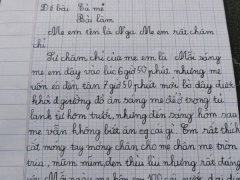 Đề bài Tả mẹ
Bài làm
Mẹ em tên là Nga Mẹ em rất chăm
chỉ
Sự chăm chỉ của mẹ em là Mỗi sáng
mẹ em dậy vào lúc 6 giờ 50 phút nhưng mẹ
vẫn cố đến tận 7 giờ 50 phút mới bò dậy được
khỏi giường đồ ăn sáng mẹ để ở trong tủ
lạnh từ hôm trước, nhưng đến sáng hôm sau
mẹ vẫn không biết ăn cái gì. Em rất thích
cắt móng tay móng chân cho mẹ chân mẹ tròn
trịa, mũm mĩm, đen thui lui nhưng rất đáng
yêu Mỗi ngày mẹ 100 cái